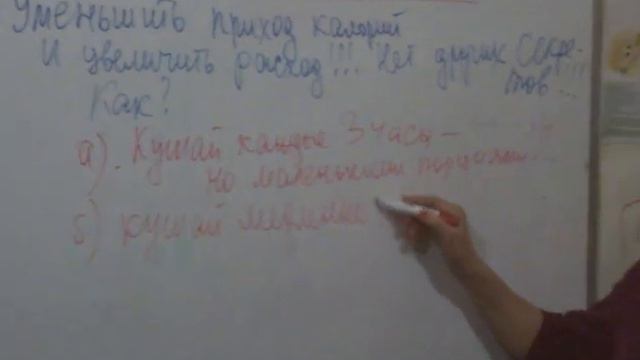 Уменьшить приход калорий
И увеличить расход!!! Нет других Секре-
тов...
Как?
а). Кушай каждые 3 часа –
но маленькими порциями
б) кушай медленно